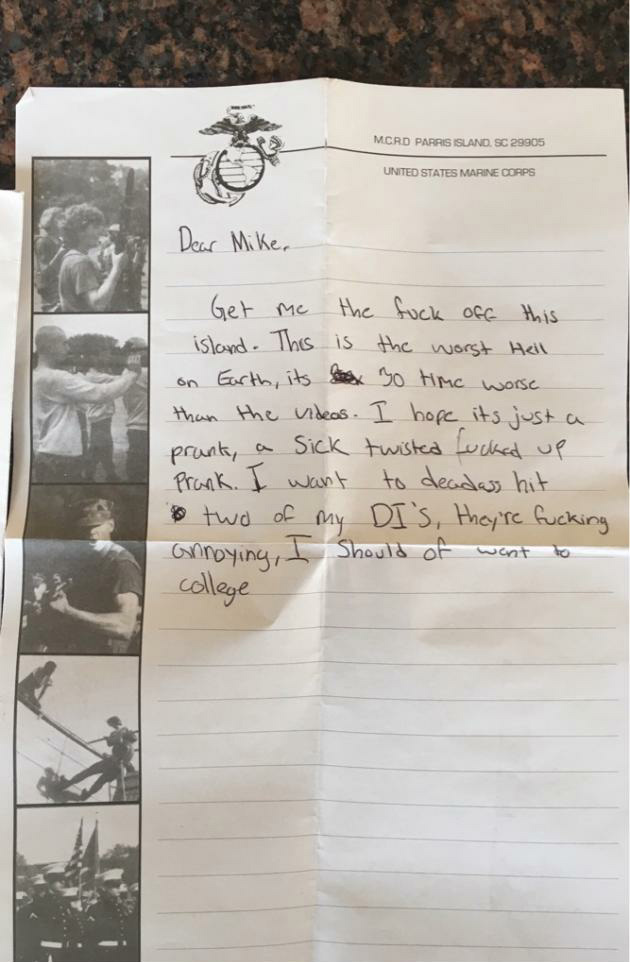 M.C.R.D PARRIS ISLAND, SC 29905
UNITED STATES MARINE CORPS
Dear Mike,
Get me the fuck off this
island. This is the worst Hell
on Earth, its 30 time worse
than the videos. I hope its just a
prank, a Sick twisted fucked up
Prank. I want to deadass hit
two of my DI's, they're fucking
annoying, I should of went to
college